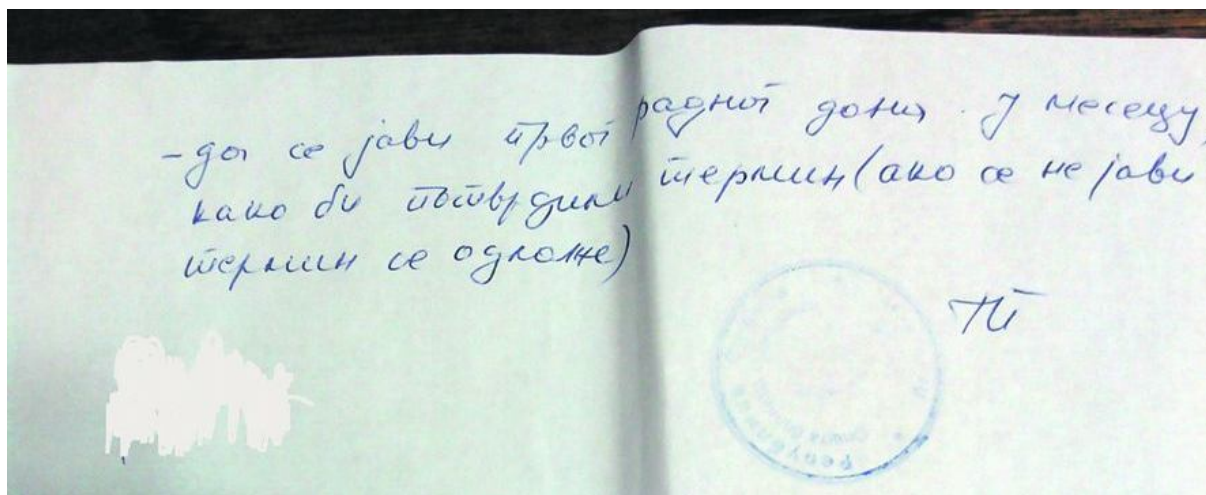 - да се јави првог радног дана у месецу,
како би потврдили термин (ако се не јави
термин се одложе)